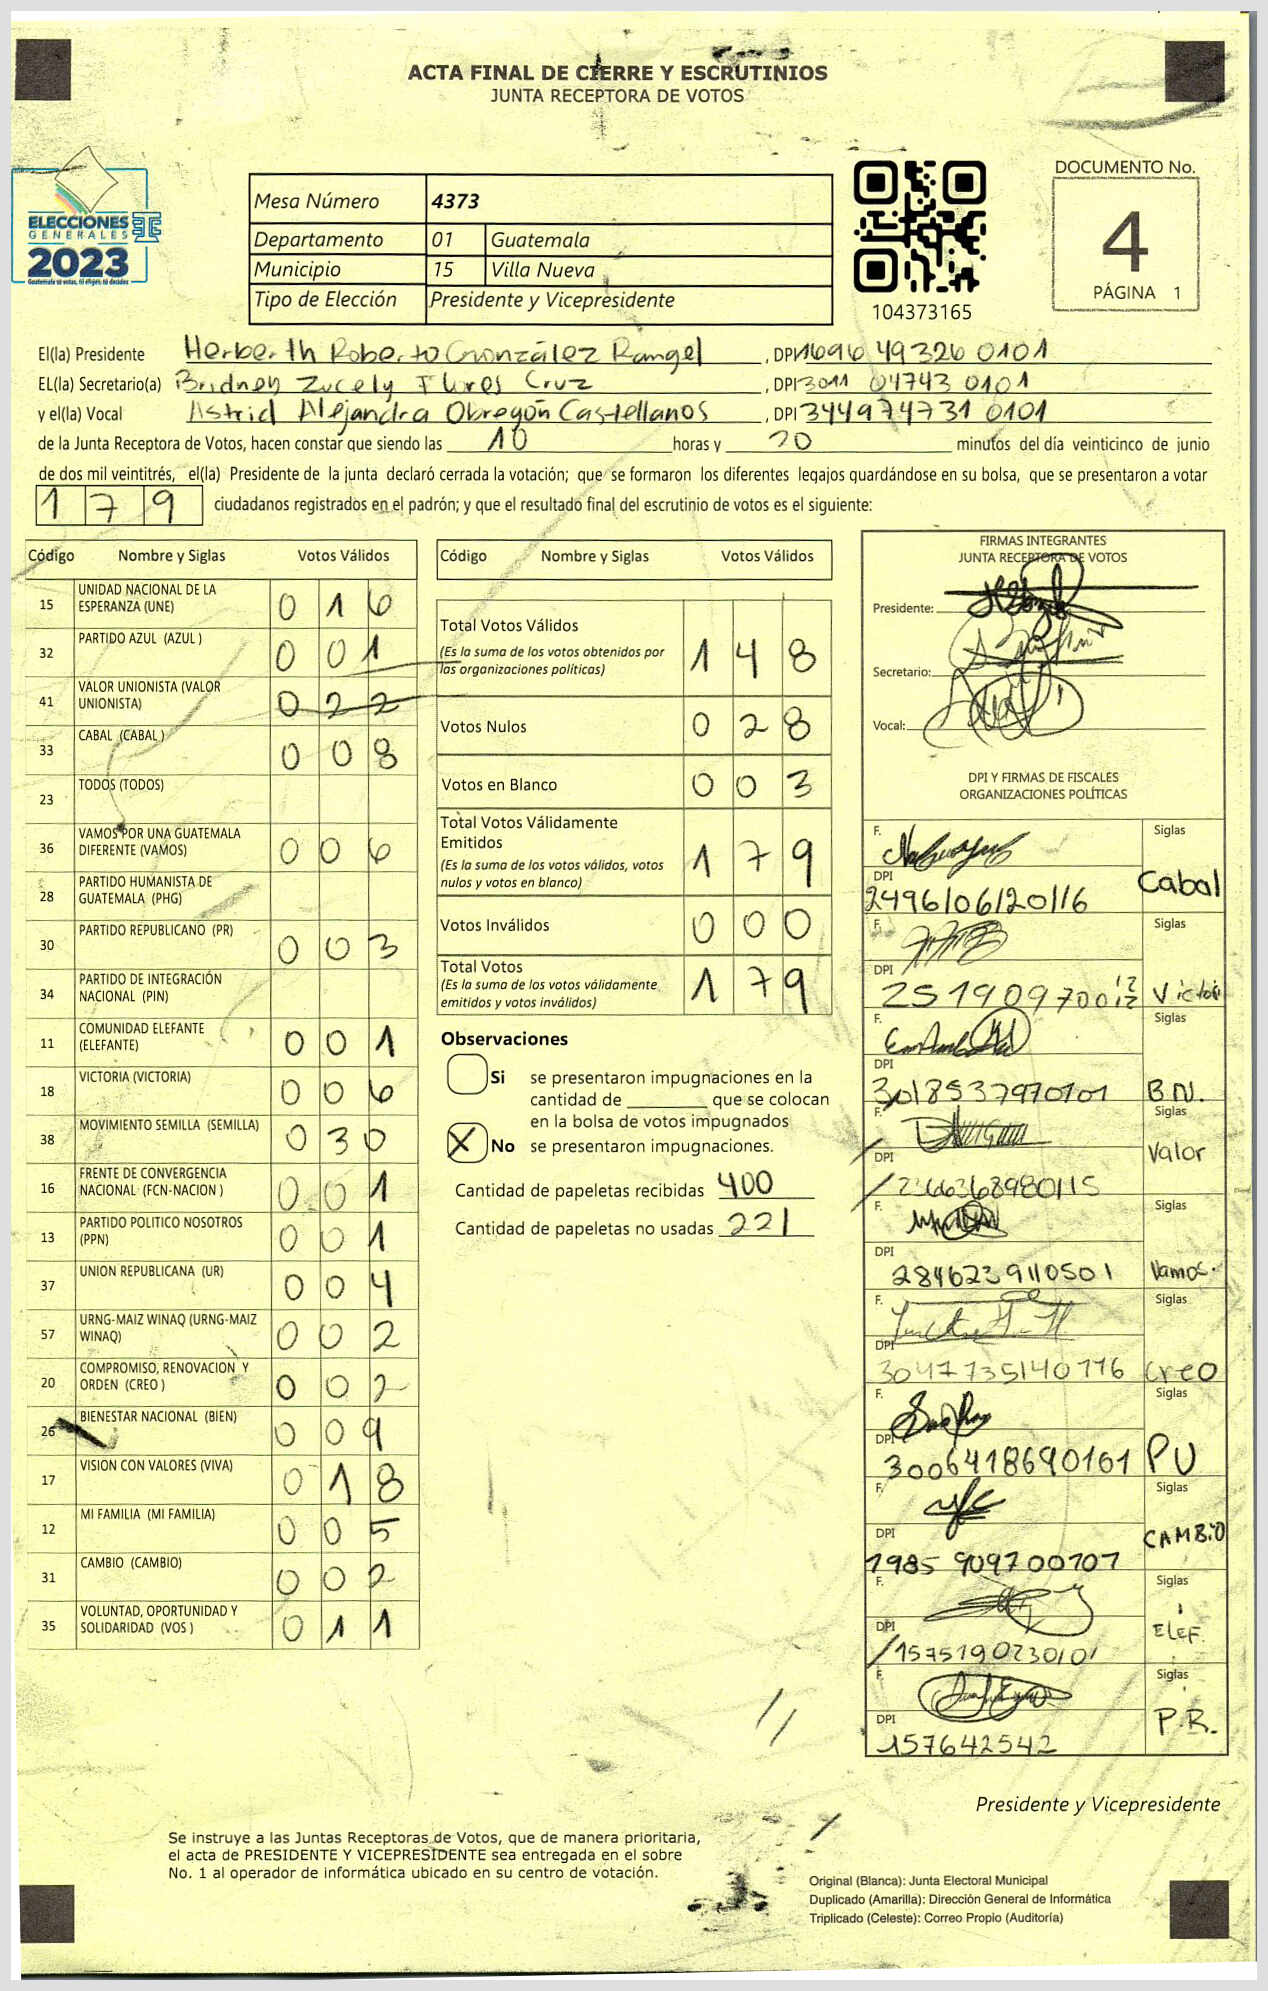 ACTA FINAL DE CIERRE Y ESCRUTINIOS
JUNTA RECEPTORA DE VOTOS
ELECCIONES
GENERALES
2023
Guatemala tú votas, tú eliges, tú decides
Mesa Número 4373
Departamento 01 Guatemala
Municipio 15 Villa Nueva
Tipo de Elección Presidente y Vicepresidente
104373165
DOCUMENTO No.
4
PÁGINA 1
El(la) Presidente Herberth Roberto González Rangel , DPI 1696 49326 0101
EL(la) Secretario(a) Bridney Zucely Flores Cruz , DPI 3011 04743 0101
y el(la) Vocal Astrid Alejandra Obregón Castellanos , DPI 344974731 0101
de la Junta Receptora de Votos, hacen constar que siendo las 10 horas y 20 minutos del día veinticinco de junio
de dos mil veintitrés, el(la) Presidente de la junta declaró cerrada la votación; que se formaron los diferentes legajos guardándose en su bolsa, que se presentaron a votar
179 ciudadanos registrados en el padrón; y que el resultado final del escrutinio de votos es el siguiente:
Código Nombre y Siglas Votos Válidos
15 UNIDAD NACIONAL DE LA ESPERANZA (UNE) 016
32 PARTIDO AZUL (AZUL ) 001
41 VALOR UNIONISTA (VALOR UNIONISTA) 022
33 CABAL (CABAL ) 008
23 TODOS (TODOS)
36 VAMOS POR UNA GUATEMALA DIFERENTE (VAMOS) 006
28 PARTIDO HUMANISTA DE GUATEMALA (PHG)
30 PARTIDO REPUBLICANO (PR) 003
34 PARTIDO DE INTEGRACIÓN NACIONAL (PIN)
11 COMUNIDAD ELEFANTE (ELEFANTE) 001
18 VICTORIA (VICTORIA) 006
38 MOVIMIENTO SEMILLA (SEMILLA) 030
16 FRENTE DE CONVERGENCIA NACIONAL (FCN-NACION ) 001
13 PARTIDO POLITICO NOSOTROS (PPN) 001
37 UNION REPUBLICANA (UR) 004
57 URNG-MAIZ WINAQ (URNG-MAIZ WINAQ) 002
20 COMPROMISO, RENOVACION Y ORDEN (CREO ) 002
26 BIENESTAR NACIONAL (BIEN) 009
17 VISION CON VALORES (VIVA) 018
12 MI FAMILIA (MI FAMILIA) 005
31 CAMBIO (CAMBIO) 002
35 VOLUNTAD, OPORTUNIDAD Y SOLIDARIDAD (VOS ) 011
Código Nombre y Siglas Votos Válidos
Total Votos Válidos 148
(Es la suma de los votos obtenidos por
las organizaciones políticas)
Votos Nulos 028
Votos en Blanco 003
Total Votos Válidamente
Emitidos 179
(Es la suma de los votos válidos, votos
nulos y votos en blanco)
Votos Inválidos 000
Total Votos 179
(Es la suma de los votos válidamente
emitidos y votos inválidos)
Observaciones
Si se presentaron impugnaciones en la
cantidad de ________ que se colocan
en la bolsa de votos impugnados
X No se presentaron impugnaciones.
Cantidad de papeletas recibidas 400
Cantidad de papeletas no usadas 221
FIRMAS INTEGRANTES
JUNTA RECEPTORA DE VOTOS
Presidente:
Secretario:
Vocal:
DPI Y FIRMAS DE FISCALES
ORGANIZACIONES POLÍTICAS
F. Siglas
DPI 2496106120116 Cabal
F. Siglas
DPI 251909700 12 Victori
F. Siglas
DPI 3018537970101 B.N.
F. Siglas
DPI 2366368980115 Valor
F. Siglas
DPI 2846239110501 Vamos.
F. Siglas
DPI 3047735140116 Creo
F. Siglas
DPI 3006418690101 PU
F. Siglas
DPI 1985 909700101 CAMBIO
F. Siglas
DPI 1575190230101 ELEF.
F. Siglas
DPI 157642542 P.R.
Presidente y Vicepresidente
Se instruye a las Juntas Receptoras de Votos, que de manera prioritaria,
el acta de PRESIDENTE Y VICEPRESIDENTE sea entregada en el sobre
No. 1 al operador de informática ubicado en su centro de votación.
Original (Blanca): Junta Electoral Municipal
Duplicado (Amarilla): Dirección General de Informática
Triplicado (Celeste): Correo Propio (Auditoría)